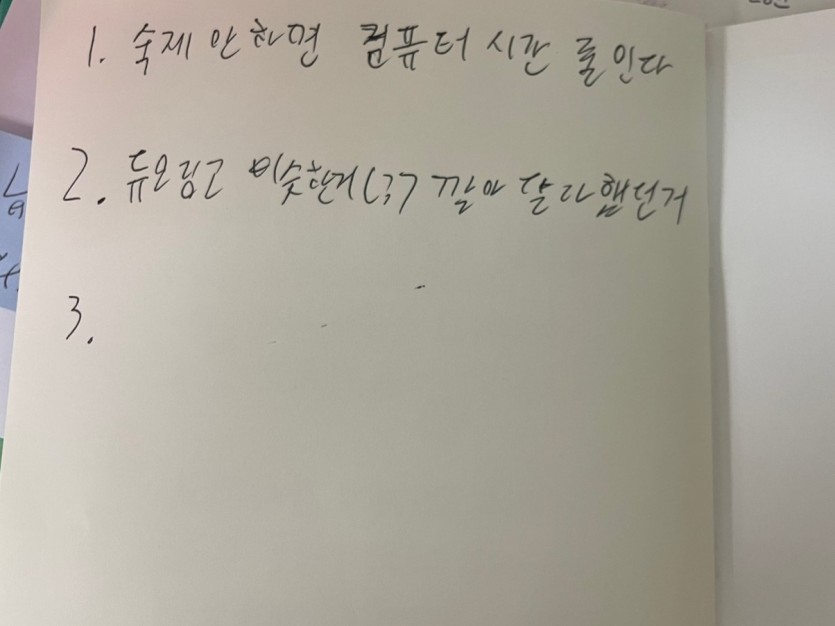 1. 숙제 안하면 컴퓨터 시간 줄인다
2. 듀오링고 비슷한거(?) 깔아 달라했던거
3.